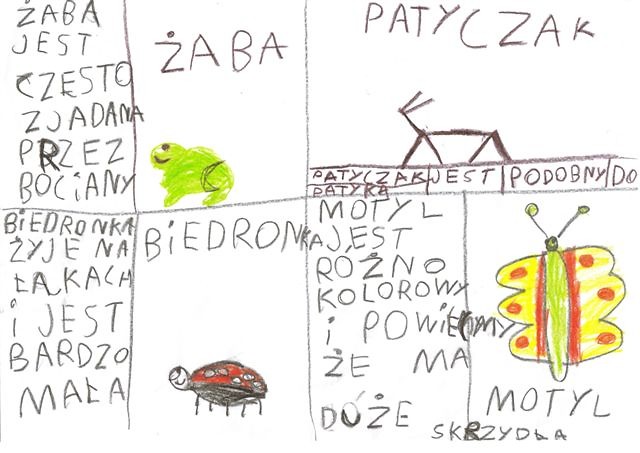 ŻABA
JEST
CZĘSTO
ZJADANA
PRZEZ
BOCiANY
ŻABA
PATYCZAK
PATYCZAK JEST PODOBNY DO
PATYKA
BiEDRONKA
ŻYJE NA
ŁĄKACH
i JEST
BARDZO
MAŁA
BiEDRONKA
MOTYL
JEST
RÓŻNO
KOLOROWY
i POWiEMY
ŻE MA
DÓŻE
SKRZYDŁA
MOTYL